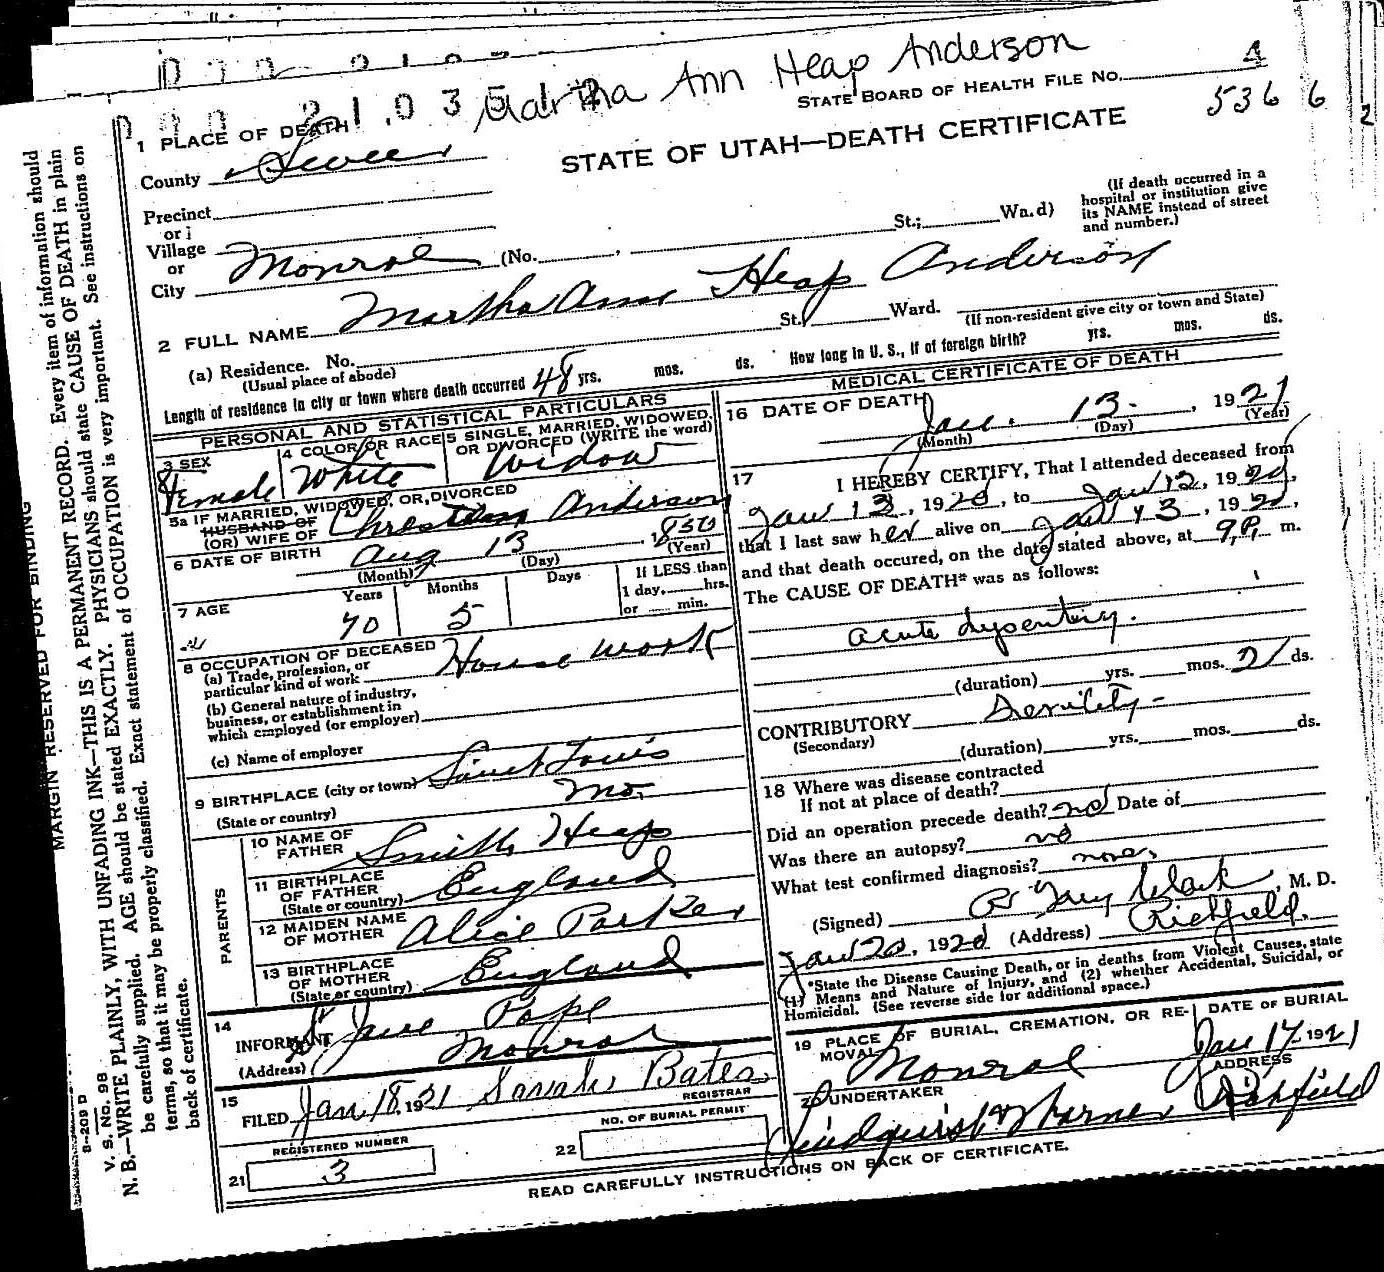 Martha Ann Heap Anderson
STATE BOARD OF HEALTH FILE No. 4
536 6 2
STATE OF UTAH—DEATH CERTIFICATE
1 PLACE OF DEATH
County Sevier
Precinct
or
Village
or
City Monroe (No. , St.; Ward)
(If death occurred in a hospital or institution give its NAME instead of street and number.)
2 FULL NAME Martha Ann Heap Anderson
(a) Residence. No. St., Ward.
(Usual place of abode)
(If non-resident give city or town and State)
Length of residence in city or town where death occurred 48 yrs. mos. ds. How long in U. S., if of foreign birth? yrs. mos. ds.
PERSONAL AND STATISTICAL PARTICULARS
3 SEX
Female
4 COLOR OR RACE
White
5 SINGLE, MARRIED, WIDOWED, OR DIVORCED (WRITE the word)
Widow
5a IF MARRIED, WIDOWED, OR, DIVORCED
HUSBAND OF
(OR) WIFE OF Anderson
6 DATE OF BIRTH Aug 13, 1850
(Month) (Day) (Year)
7 AGE
Years 70
Months 5
Days
If LESS than
1 day, hrs.
or min.
8 OCCUPATION OF DECEASED
(a) Trade, profession, or
particular kind of work House work
(b) General nature of industry,
business, or establishment in
which employed (or employer)
(c) Name of employer
9 BIRTHPLACE (city or town) Saint Louis
(State or country) Mo.
PARENTS
10 NAME OF FATHER Smith Heap
11 BIRTHPLACE OF FATHER
(State or country) England
12 MAIDEN NAME OF MOTHER Alice Parker
13 BIRTHPLACE OF MOTHER
(State or country) England
14
INFORMANT Jane Pope
(Address) Monroe
15
FILED Jan 18, 1921 Sarah Bates
REGISTRAR
REGISTERED NUMBER
21 3
NO. OF BURIAL PERMIT
22
MEDICAL CERTIFICATE OF DEATH
16 DATE OF DEATH Jan. 13, 1921
(Month) (Day) (Year)
17 I HEREBY CERTIFY, That I attended deceased from
Jan 13, 1920, to Jan 12, 1920,
that I last saw her alive on Jan 13, 1920,
and that death occured, on the date stated above, at 9 P. m.
The CAUSE OF DEATH* was as follows:
acute dysentery.
(duration) yrs. mos. 21 ds.
CONTRIBUTORY Senility -
(Secondary)
(duration) yrs. mos. ds.
18 Where was disease contracted
If not at place of death?
Did an operation precede death? no Date of
Was there an autopsy? no
What test confirmed diagnosis? none
(Signed) Clark, M. D.
Jan 20, 1920 (Address) Richfield.
*State the Disease Causing Death, or in deaths from Violent Causes, state
(1) Means and Nature of Injury, and (2) whether Accidental, Suicidal, or
Homicidal. (See reverse side for additional space.)
19 PLACE OF BURIAL, CREMATION, OR REMOVAL
Monroe
DATE OF BURIAL
Jan 17 1921
UNDERTAKER
Lindquist & Warner
ADDRESS
Richfield
READ CAREFULLY INSTRUCTIONS ON BACK OF CERTIFICATE.
MARGIN RESERVED FOR BINDING
N. B.—WRITE PLAINLY, WITH UNFADING INK—THIS IS A PERMANENT RECORD. Every item of information should
be carefully supplied. AGE should be stated EXACTLY. PHYSICIANS should state CAUSE OF DEATH in plain
terms, so that it may be properly classified. Exact statement of OCCUPATION is very important. See instructions on
back of certificate.
V. S. No. 98
S-209 D